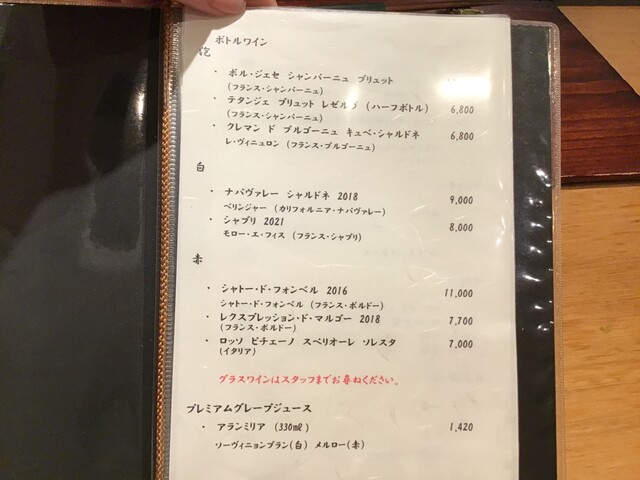 ボトルワイン
泡
・ ポル・ジェセ シャンパーニュ ブリュット
(フランス・シャンパーニュ)
・ テタンジェ ブリュット レゼルブ (ハーフボトル) 6,800
(フランス・シャンパーニュ)
・ クレマン ド ブルゴーニュ キュベ・シャルドネ 6,800
レ・ヴィニュロン (フランス・ブルゴーニュ)
白
・ ナパヴァレー シャルドネ 2018 9,000
ベリンジャー (カリフォルニア・ナパヴァレー)
・ シャブリ 2021 8,000
モロー・エ・フィス (フランス・シャブリ)
赤
・ シャトー・ド・フォンベル 2016 11,000
シャトー・ド・フォンベル (フランス・ボルドー)
・ レクスプレッション・ド・マルゴー 2018 7,700
(フランス・ボルドー)
・ ロッソ ピチェーノ スペリオーレ ソレスタ 7,000
(イタリア)
グラスワインはスタッフまでお尋ねください。
プレミアムグレープジュース
・ アランミリア (330㎖) 1,420
ソーヴィニョンブラン(白) メルロー(赤)